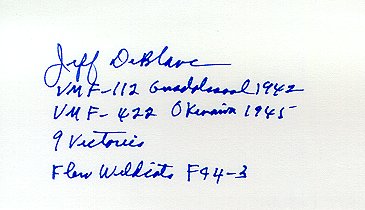 Jeff DeBlanc
VMF-112 Guadalcanal 1942
VMF-422 Okinawa 1945
9 Victories
Flew Wildcats F44-3